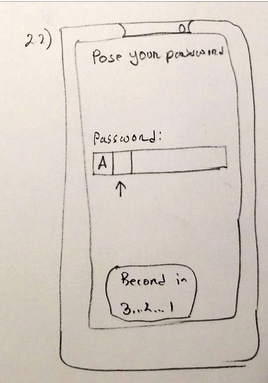 2.2)
Pose your password
Password:
A
Record in
3...2...1